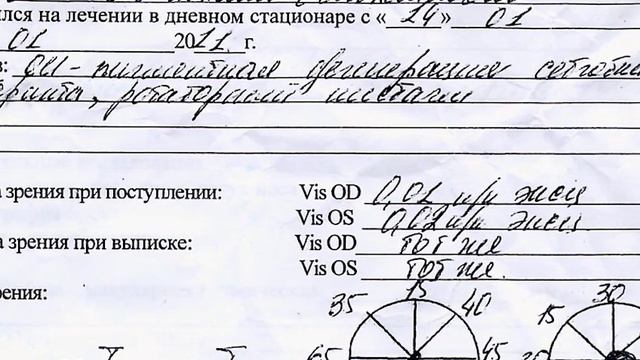 лся на лечении в дневном стационаре с « 24 » 01
01 2011 г.
OU - пигментная дегенерация сетчатки
ротаторный нистагм
а зрения при поступлении: Vis OD 0,01 н/к эксц
Vis OS 0,02 н/к эксц
а зрения при выписке: Vis OD тот же
Vis OS тот же.
рения:
35 15 40 15 30
65 45